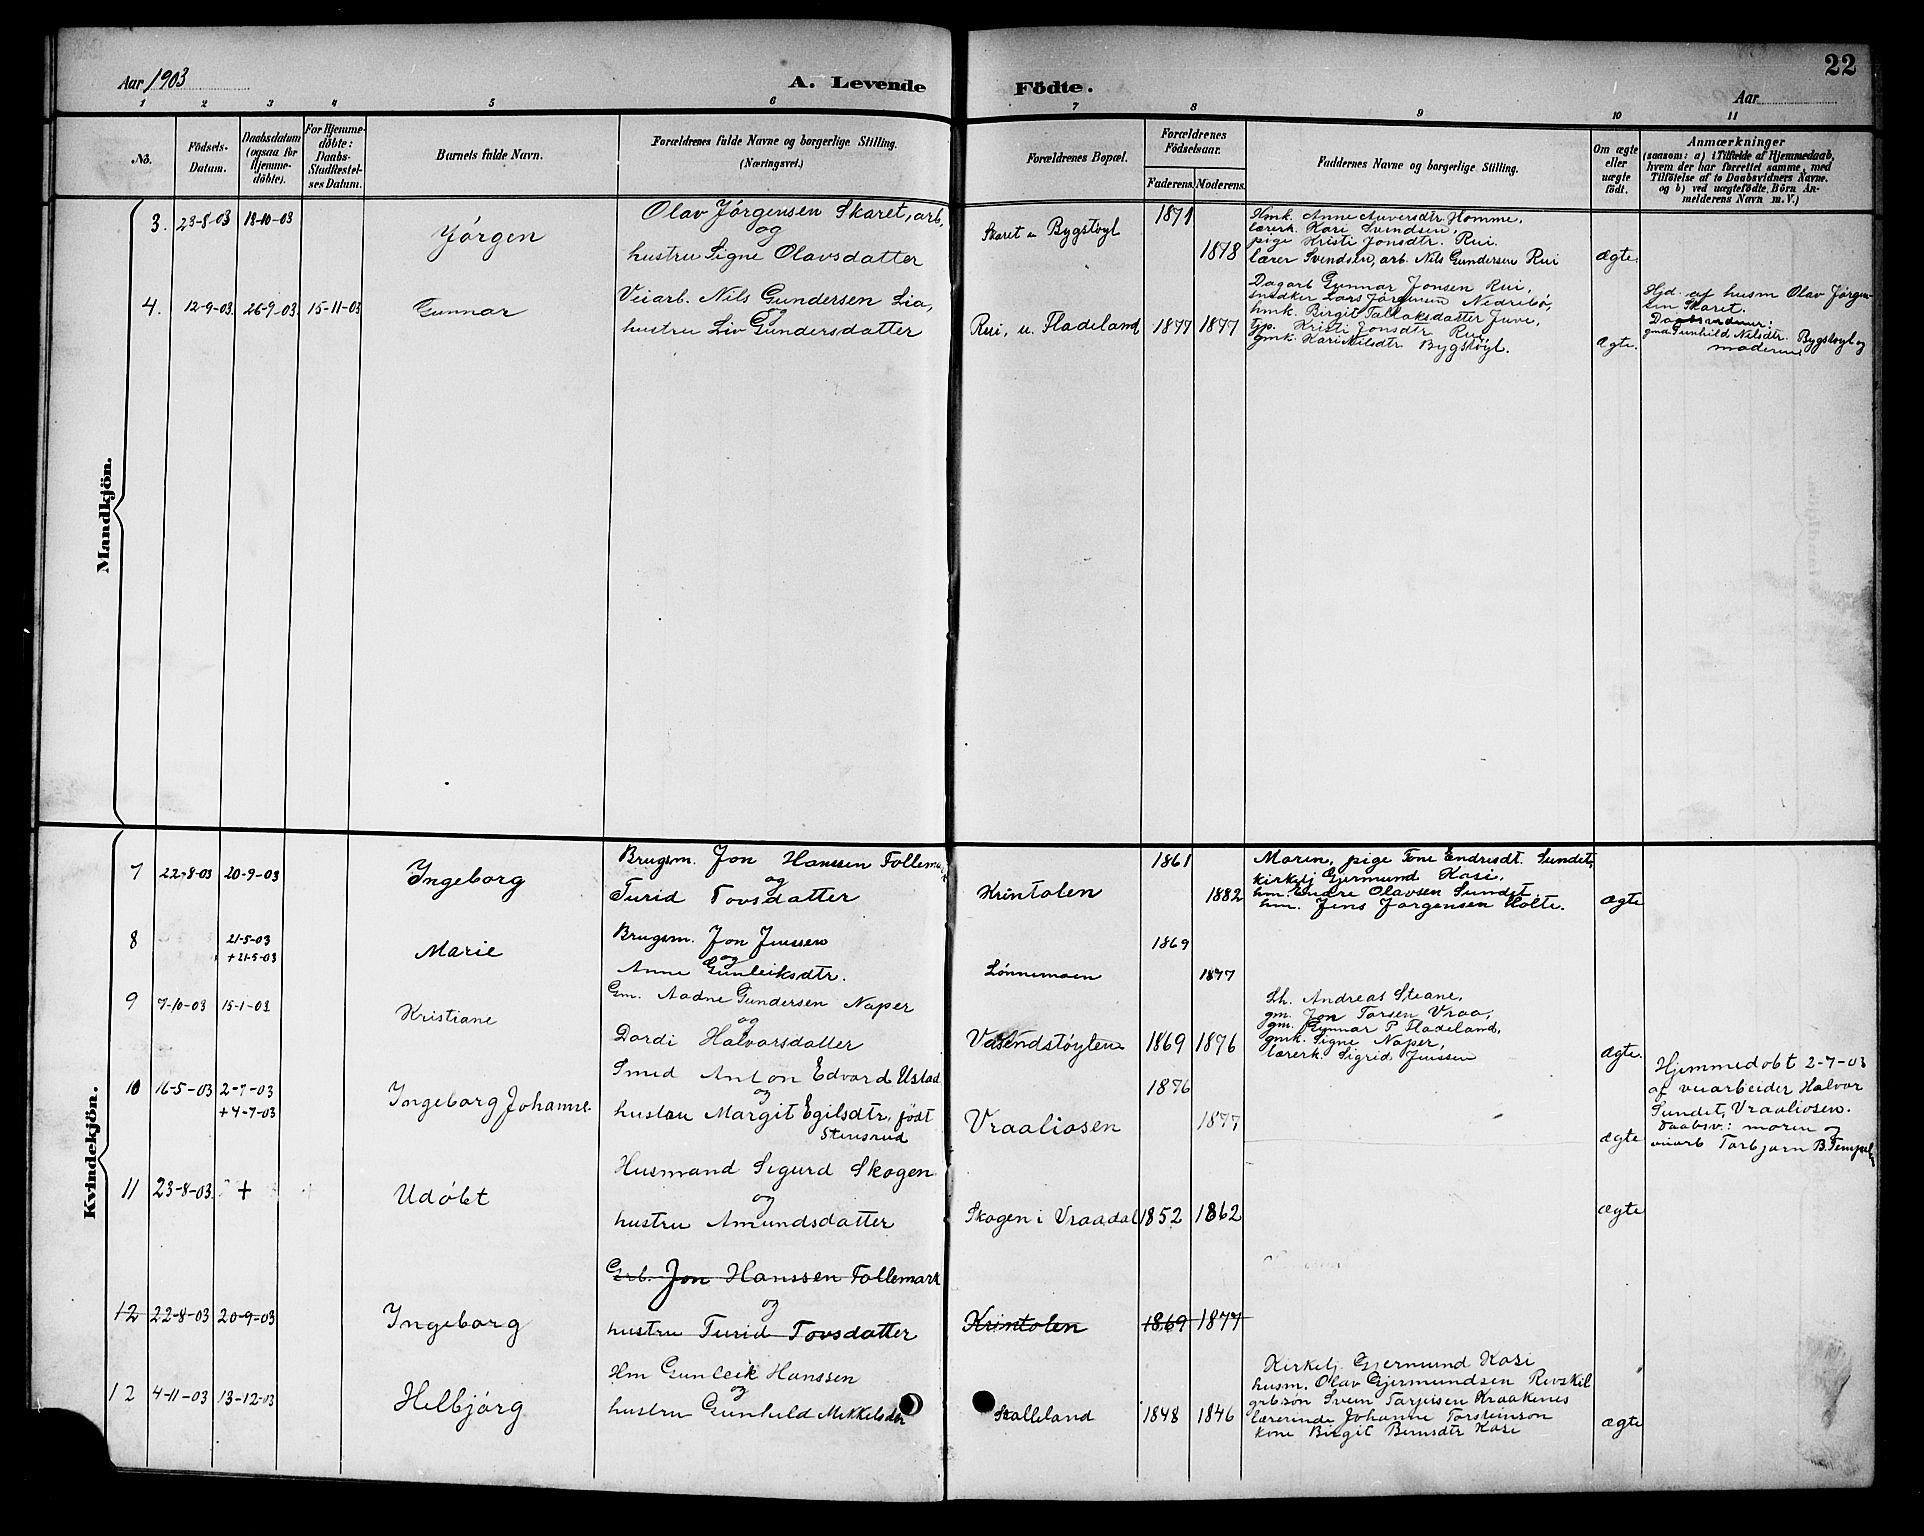 22
Aar 1903
A. Levende
Födte.
Aar
1 2 3 4 5 6 7 8 9 10 11
No.
Födsels-
Datum.
Daabsdatum
(ogsaa for
Hjemme-
döbte).
For Hjemme-
döbte:
Daabs-
Stadfæstel-
ses Datum.
Barnets fulde Navn.
Forældrenes fulde Navne og borgerlige Stilling.
(Næringsvei.)
Forældrenes Bopæl.
Forældrenes
Födselsaar.
Faderens.
Moderens.
Faddernes Navne og borgerlige Stilling.
Om ægte
eller
uægte
födt.
Anmærkninger
(saasom: a) i Tilfælde af Hjemmedaab,
hvem der har forrettet samme, med
Tilföielse af to Daabsvidners Navne.
og b) ved uægtefödte Börn An-
melderens Navn m. V.)
Mandkjön.
3. 23-8-03 18-10-03
Jórgen
Olav Jórgensen Skaret, arb,
og
hustru Signe Olavsdatter
Skaret u Bygstóyl
1871
1878
Hmk. Anne Auversdtr. Homme,
lærerk. Kari Svendsen,
pige Kristi Jonsdtr. Rui.
lærer Svendsen, arb. Nils Gundersen Rui
Ægte.
4. 12-9-03 26-9-03 15-11-03
Gunnar
Veiarb. Nils Gundersen Lia,
og
hustru Liv Gundersdatter
Rui, u. Fladeland
1877 1877
Dagarb Gunnar Jonsen Rui,
snedker Lars Jórgensen Nedrebó,
hmk. Birgit Tallaksdatter Juve,
tjp. Kristi Jonsdtr Rui
gmk. Kari Nilsdtr Bygstóyl.
Ægte.
Hjd. af husm Olav Jórgen-
sen Skaret.
Daabsvidner:
gmd. Gunhild Nilsdtr. Bygstóyl og
moderen
Kvindekjön.
7 22-8-03 20-9-03
Ingeborg
Brugsm. Jon Hanssen Follemark
og
Turid Tovsdatter
Krintolen
1861
1882
Moren, pige Tone Endresdt. Sundet,
kirkelj Gjermund Kosi,
hm. Endre Olavsen Sundet
hm. Jens Jorgensen Holte.
Ægte
8 21-5-03
+21-5-03
Marie
Brugsm. Jon Jenssen
og
Anne Gunleiksdtr.
Lónnemoen
1869
1877
9 7-10-03 15-1-03
Kristiane
Gm. Aadne Gundersen Naper
og
Dordi Halvorsdatter
Vasendstóylen
1869 1876
Lh. Andreas Steane,
gm. Jon Torsen Vraa,
gm. Gunnar P Fladeland,
gmk. Signe Naper,
lærerk. Sigrid Jenssen
Ægte.
10 16-5-03 2-7-03
+4-7-03
Ingeborg Johanne
Smed Anton Edvard Ustad
og
hustru Margit Egilsdtr, födt
Stensrud
Vraaliosen
1876
1877
ægte
Hjemmedobt 2-7-03
af veiarbeider Halvor
Sundet, Vraaliosen.
Daabsv: moren og
veiarb Torbjorn B. Tempel
11 23-8-03 +
Udóbt
Husmand Sigurd Skogen
og
hustru Amundsdatter
Skogen i Vraadal
1852 1862
ægte
12 22-8-03 20-9-03
Ingeborg
Grb. Jon Hanssen Follemark
og
hustru Turid Tovsdatter
Krintolen
1869 1877
12 4-11-03 13-12-03
Helbjórg
Hm Gunleik Hanssen
og
hustru Gunhild Mikkelsdtr
Skalleland
1848 1846
Kirkelj. Gjermund Kosi
husm. Olav Gjermundsen Revskil
grbsón Svein Tarjeisen Kraakenes
lærerinde Johanne Torsteinson
kone Birgit Bernsdtr Kosi
ægte